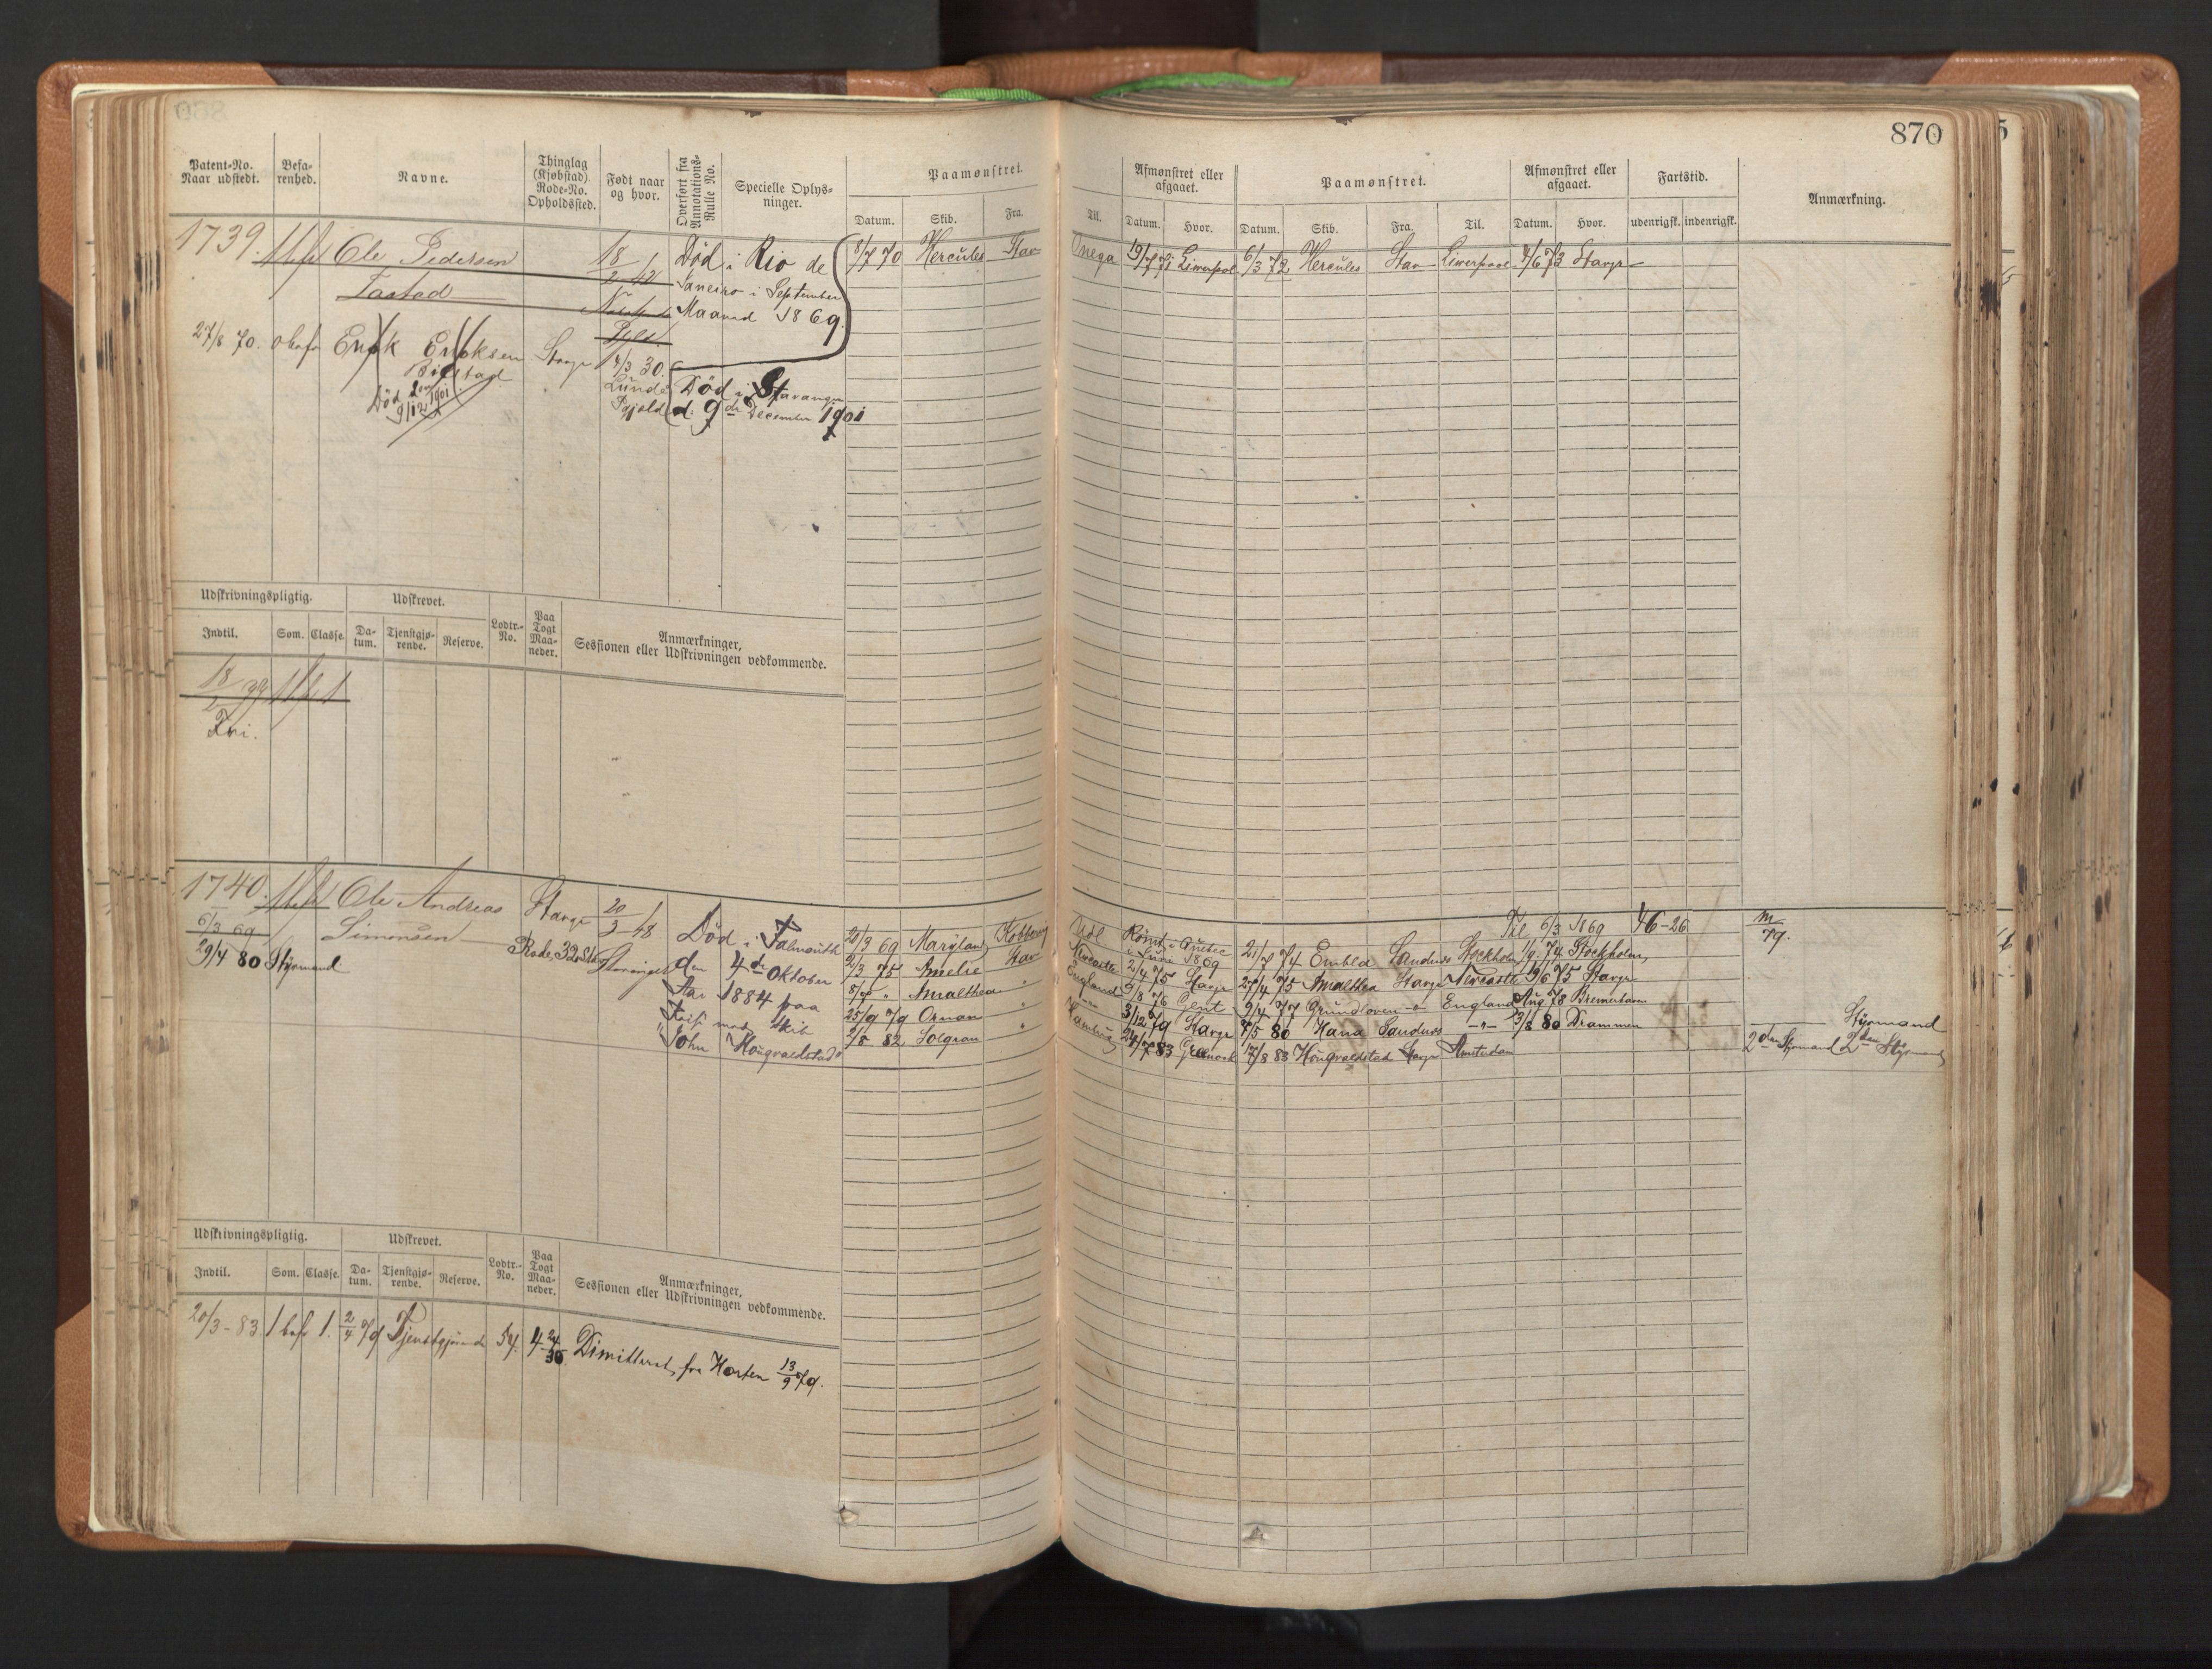 870
Patent-No. Naar udstedt.
Befarenhed.
Navne.
Thinglag (Kjøbstad) Rode-No. Opholdssted.
Født naar og hvor.
Overført fra Annotations-Rulle No.
Specielle Oplysninger.
Paamønstret.
Datum. Skib. Fra. Til.
Afmønstret eller afgaaet.
Datum. Hvor.
Paamønstret.
Datum. Skib. Fra. Til.
Afmønstret eller afgaaet.
Datum. Hvor.
Fartstid.
udenrigsk. indenrigsk.
Anmærkning.
1739.
Ole Pedersen
Tastad
18/2 42
Død i Rio de
Janeiro i September
Maaned 1869.
27/8 70. Erik Eriksen
Død den 9/12 1901
Stavgr
4/3 30.
Lunde
Død i Stavanger
d. 9de December 1901
8/7 70 Hercules Stav Onega 19/7 71 Liverpool 6/3 72 Hercules Stav Liverpool 4/6 73 Stavgr
Udskrivningspligtig. Udskrevet.
Indtil. Som. Classe. Datum. Tjenstgjørende. Reserve. Lodtr.-No. Paa Togt Maaneder.
Anmærkninger, Sessionen eller Udskrivningen vedkommende.
18/2
Fri.
1740.
6/3 69
29/4 80 Styrmand
Ole Andreas
Simonsen
Stavgr
Rode, 32
20/3 48
Stavanger
Død i Falmouth
den 4de Oktober
Aar 1884 paa
Reise med Skib
"John Hougvaldstad"
20/3 69 Maryland
2/3 75 Amelie Stav Newcastle 2/4 75 Stavgr
8/7 " Amalthea " England 9/8 76
25/9 79 Ornan " 3/12 79 Stavgr
2/8 82 Solgran " Hamburg 24/7 83 Greenock
Rømt i Quebec
i Juni 1869
Til 6/3 1869 46-26
21/7 74 Embla Sandnes Stockholm 1/9 74 Stockholm
27/4 75 Amalthea Stavgr Newcastle 19/6 75 Stavgr
9/4 77 Grundloven England Aug 78 Bremerhaven
7/5 80 Hana Sandnes -"- 3/8 80 Drammen
17/8 83 Hougvaldstad Stavgr Amsterdam
m/79.
Styrmand
2den Styrmand 2den Styrmand
Udskrivningspligtig. Udskrevet.
Indtil. Som. Classe. Datum. Tjenstgjørende. Reserve. Lodtr.-No. Paa Togt Maaneder.
Anmærkninger, Sessionen eller Udskrivningen vedkommende.
20/3-83 1 bef 1. 2/4 79 Tjenstgjørende 54. 4-24/30 Dimitteret fra Horten 13/9 79.